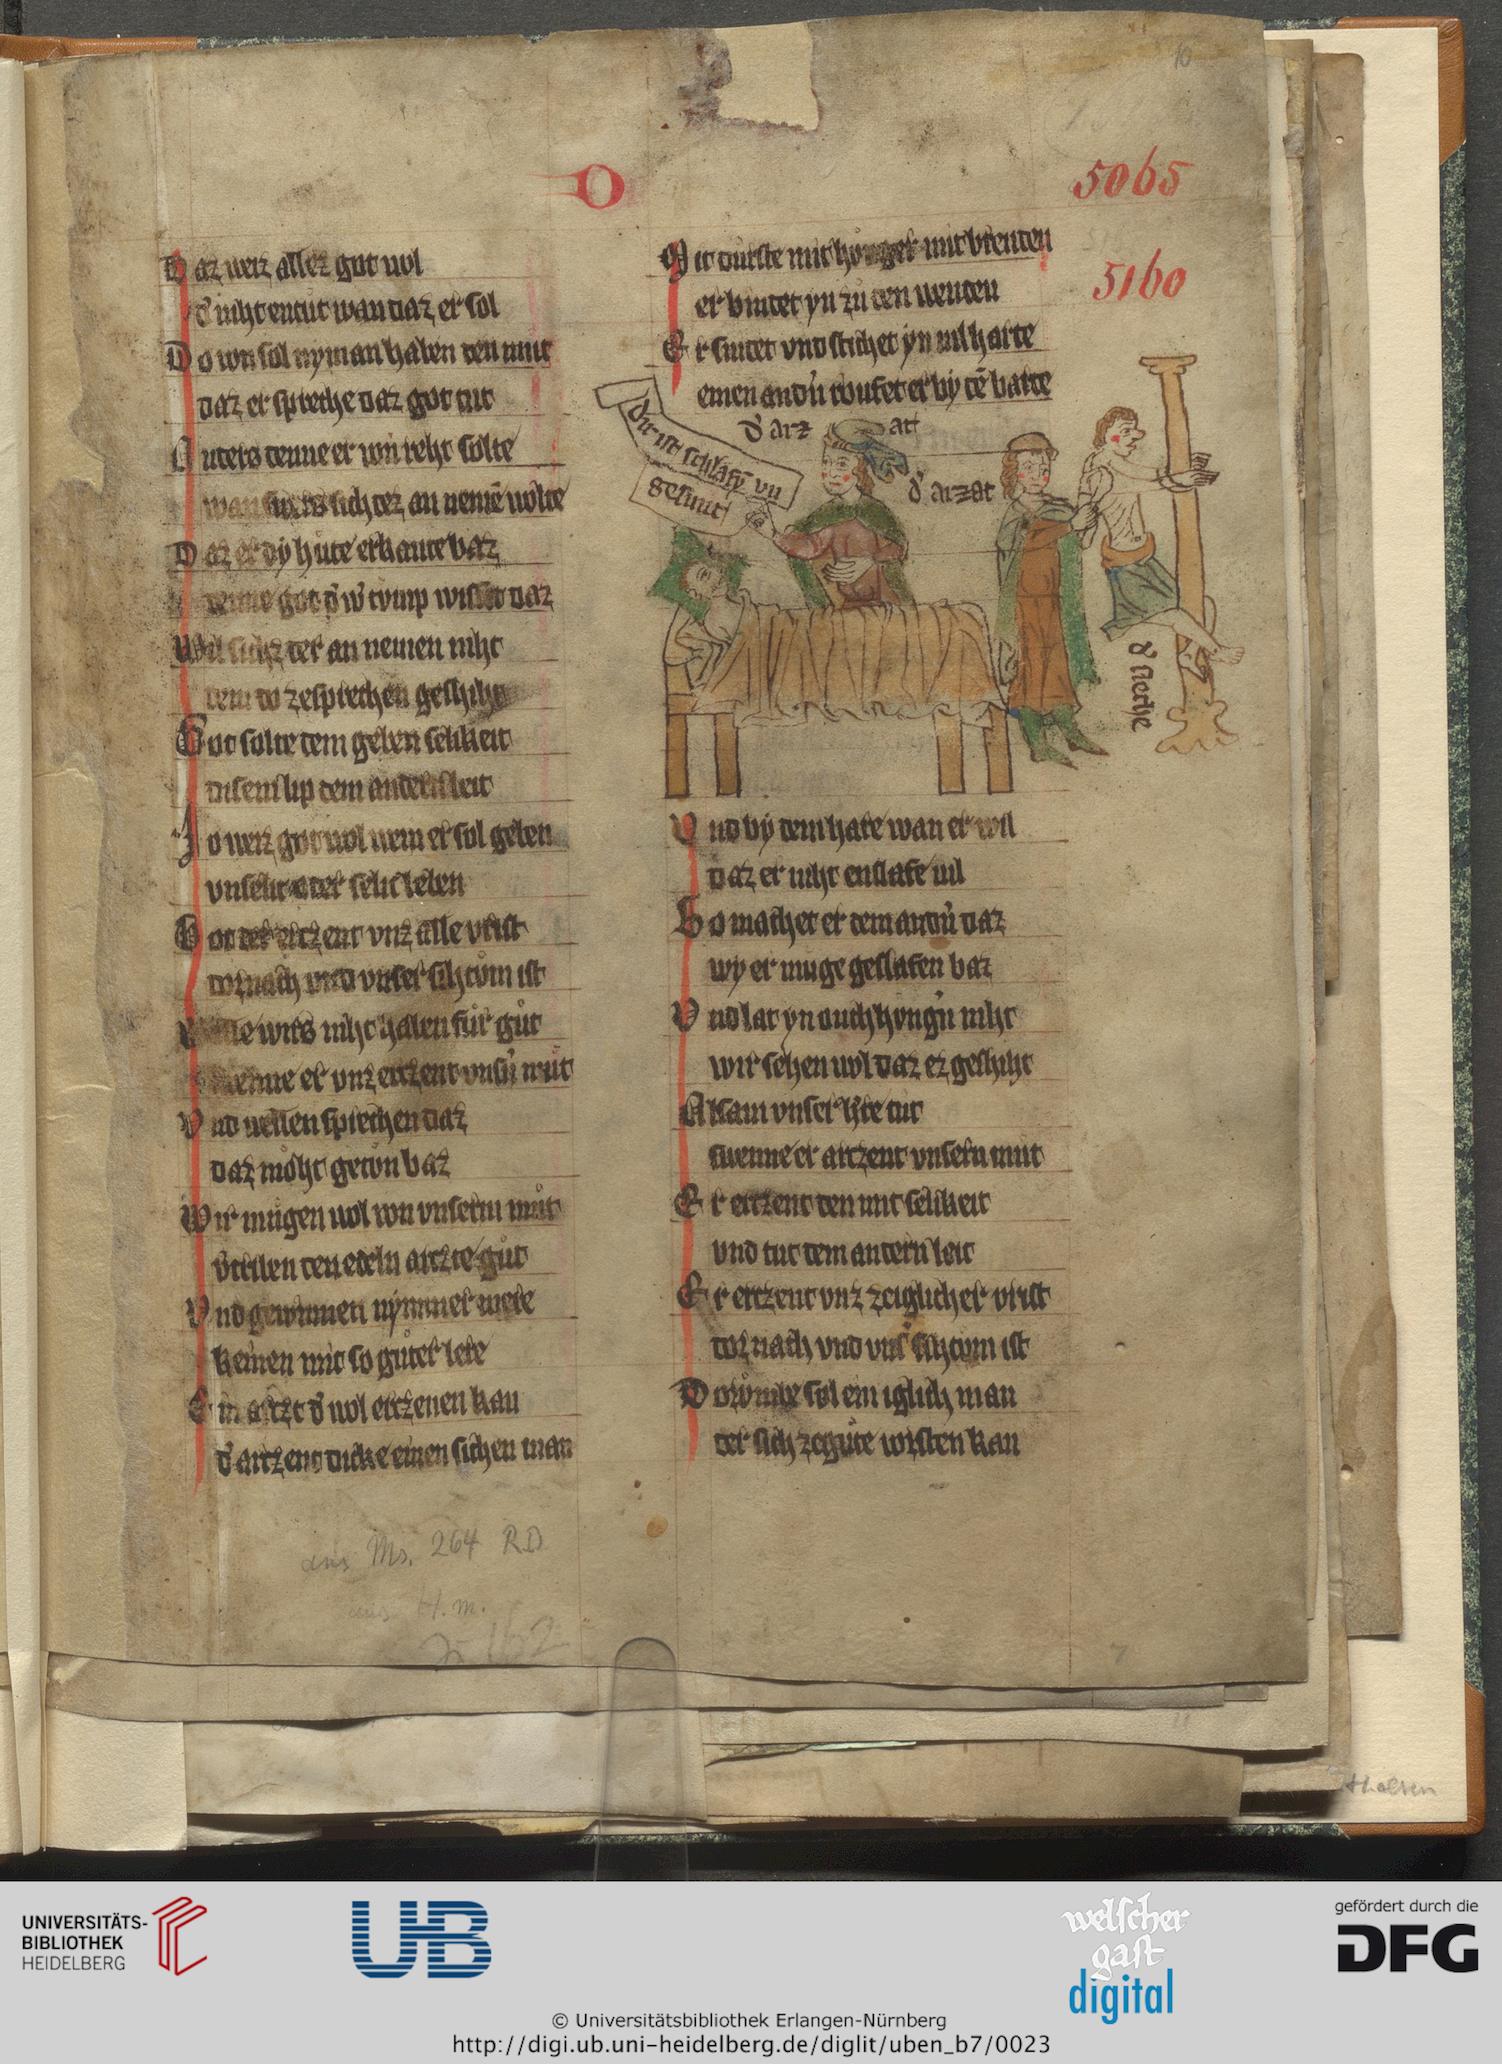 10
O
5065
5160
Daz weiz allez got wol
d' niht entut wan daz er sol
Do von sol nyman haben den mut
daz er spreche daz got tut
Anders denne er von reht solte
wan swer sich dez an nemē wolte
Daz er dy hute erkante baz
denne got
Wil sichz der an nemen niht
dem do zesprechen geschiht
Got solte dem geben selikeit
disem lip dem andern leit
Jo weiz got wol wem er sol geben
vnselic oder selic leben
Got der ertzent vnz alle vrist
dornach vnd vnser sihtum ist
wirs niht haben für gůt
swenne er vnz ertzent vnsñ mut
Vnd wellen sprechen daz
daz möht geton baz
Wir mügen wol von vnserm můt
vrteilen den edeln artzte gůt
Vnd gewinnen nymmer mere
keinen mit so guter lere
Ein artzt d' wol ertzenen kan
d' artzent dicke einen sichen man
Mit durste mit hunger mit brenden
er bindet yn zu den wenden
Er snidet vnd stichet yn vil harte
einen andñ roufet er by dē barte
d' arz att
dir ist schlafē vñ
gesunt
d' arzat
d' sieche
Vnd by dem hare wan er wil
daz er niht enslafe vil
So machet er dem andñ daz
wy er muge geslafen baz
Vnd lat yn ouch hungñ niht
wir sehen wol daz ez geschiht
Alsam vnser h're tut
swenne er artzent vnsern mut
Er ertzent den mit selikeit
vnd tut dem andern leit
Er ertzent vnz zeiglicher vrist
dornach vnd vns' sihtum ist
Dorvmbe sol ein iglich man
der sich zegute virsten kan
aus Ms. 264 RD
aus H. m.
7
UNIVERSITÄTS-
BIBLIOTHEK
HEIDELBERG
UB
welscher
gast
digital
gefördert durch die
DFG
© Universitätsbibliothek Erlangen-Nürnberg
http://digi.ub.uni-heidelberg.de/diglit/uben_b7/0023